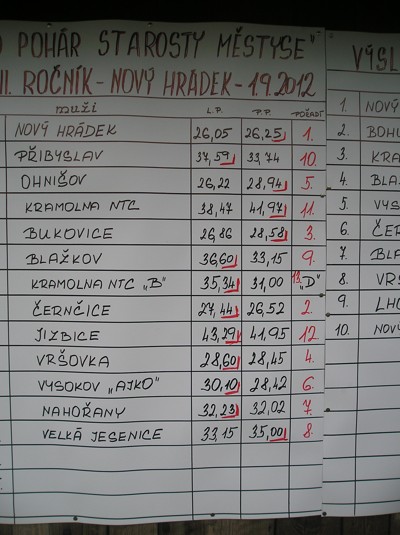 POHÁR STAROSTY MĚSTYSE"
II. ROČNÍK - NOVÝ HRÁDEK - 1.9.2012
muži L.P. P.P. POŘADÍ
NOVÝ HRÁDEK 26,05 26,25 1.
PŘIBYSLAV 37,59 33,74 10.
OHNIŠOV 26,22 28,94 5.
KRAMOLNA NTC 38,47 41,97 11.
BUKOVICE 26,86 28,58 3.
BLAŽKOV 36,60 33,15 9.
KRAMOLNA NTC „B" 35,34 31,00 13. „D"
ČERNČICE 27,44 26,52 2.
JIZBICE 43,29 41,95 12
VRŠOVKA 28,60 28,45 4.
VYSOKOV „AJKO" 30,10 28,42 6.
NAHOŘANY 32,23 32,02 7.
VELKÁ JESENICE 33,15 35,00 8.
VÝSL
1. NOVÝ
2. BOHU
3. KRA
4. BLA
5. VYS
6. ČER
7. BLA
8. VRŠ
9. LHO
10. NOVÝ